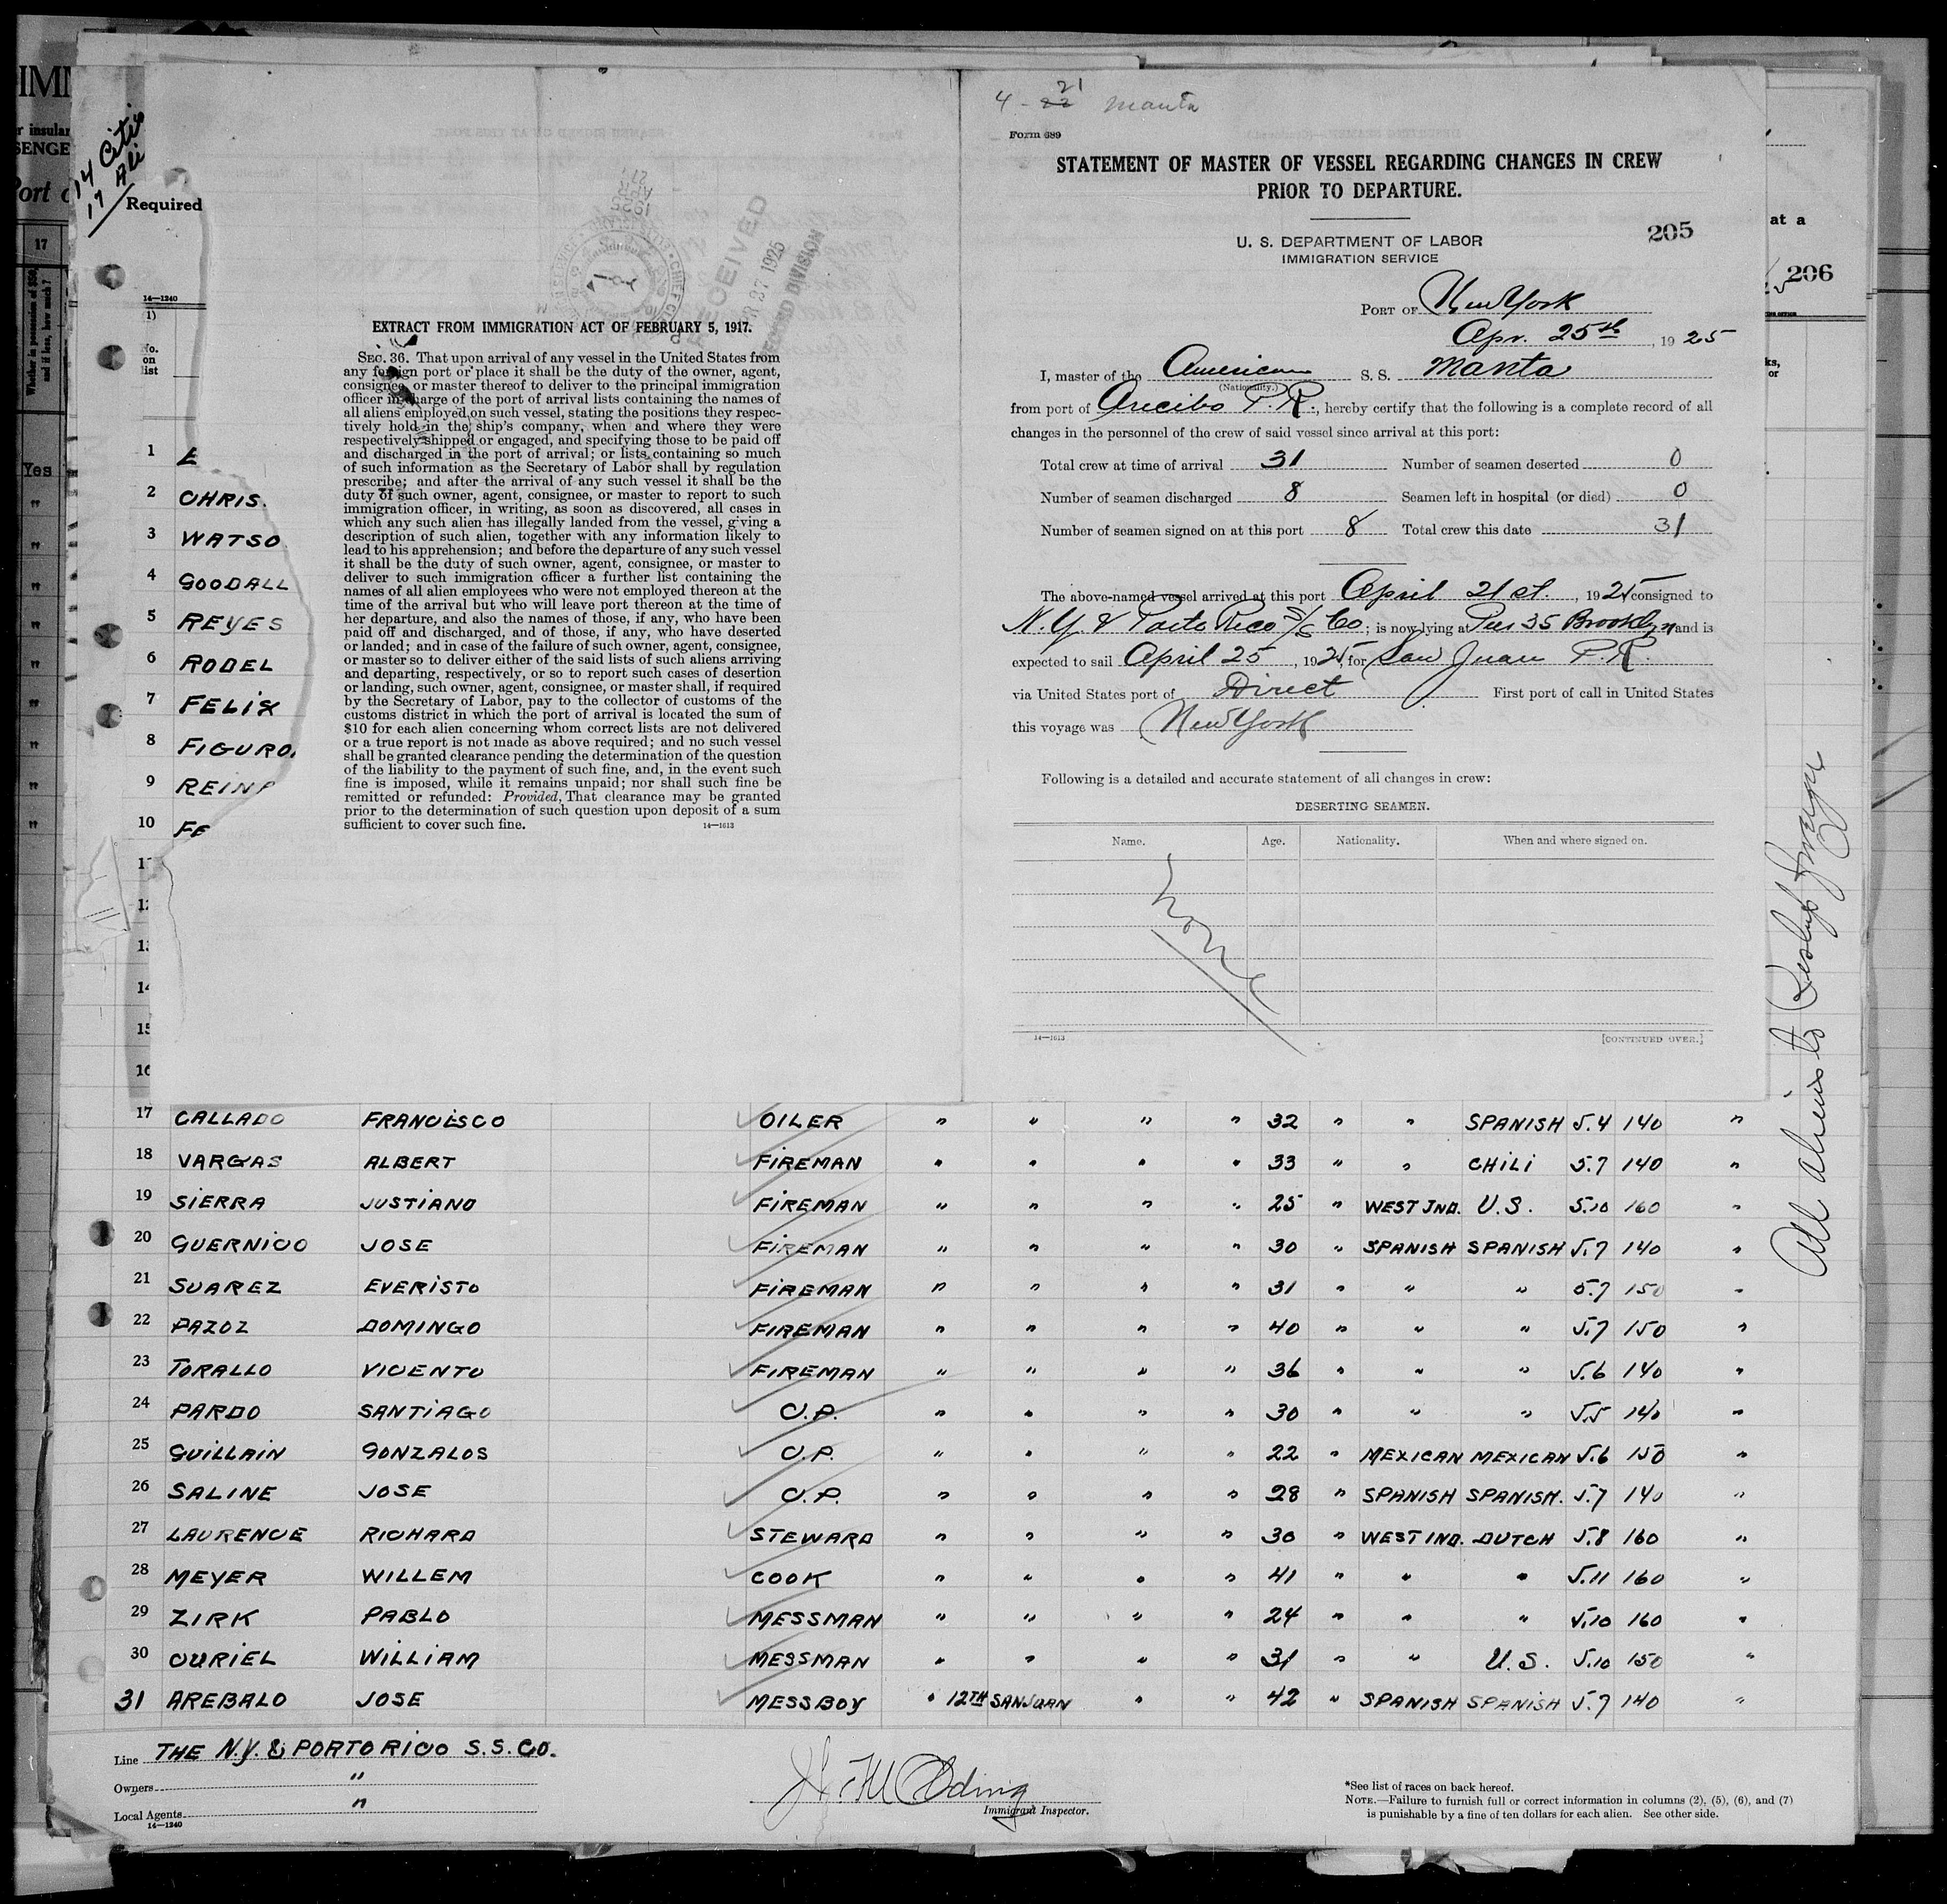 14 Citiz
17 Ali
Required
14—1240
No.
on
list
1
2 CHRIS.
3 WATSO
4 GOODALL
5 REYES
6 RODEL
7 FELIX
8 FIGURO
9 REIN
10 FE
17
Whether in possession of $50,
and if less, how much?
Yes
RECEIVED
27 1925
DIVISION
EXTRACT FROM IMMIGRATION ACT OF FEBRUARY 5, 1917.
SEC. 36. That upon arrival of any vessel in the United States from
any foreign port or place it shall be the duty of the owner, agent,
consignee, or master thereof to deliver to the principal immigration
officer in charge of the port of arrival lists containing the names of
all aliens employed on such vessel, stating the positions they respec-
tively hold in the ship's company, when and where they were
respectively shipped or engaged, and specifying those to be paid off
and discharged in the port of arrival; or lists containing so much
of such information as the Secretary of Labor shall by regulation
prescribe; and after the arrival of any such vessel it shall be the
duty of such owner, agent, consignee, or master to report to such
immigration officer, in writing, as soon as discovered, all cases in
which any such alien has illegally landed from the vessel, giving a
description of such alien, together with any information likely to
lead to his apprehension; and before the departure of any such vessel
it shall be the duty of such owner, agent, consignee, or master to
deliver to such immigration officer a further list containing the
names of all alien employees who were not employed thereon at the
time of the arrival but who will leave port thereon at the time of
her departure, and also the names of those, if any, who have been
paid off and discharged, and of those, if any, who have deserted
or landed; and in case of the failure of such owner, agent, consignee,
or master so to deliver either of the said lists of such aliens arriving
and departing, respectively, or so to report such cases of desertion
or landing, such owner, agent, consignee, or master shall, if required
by the Secretary of Labor, pay to the collector of customs of the
customs district in which the port of arrival is located the sum of
$10 for each alien concerning whom correct lists are not delivered
or a true report is not made as above required; and no such vessel
shall be granted clearance pending the determination of the question
of the liability to the payment of such fine, and, in the event such
fine is imposed, while it remains unpaid; nor shall such fine be
remitted or refunded: Provided, That clearance may be granted
prior to the determination of such question upon deposit of a sum
sufficient to cover such fine.
14—1613
21
4 - 22 Manta
Form 689
STATEMENT OF MASTER OF VESSEL REGARDING CHANGES IN CREW
PRIOR TO DEPARTURE.
205
U. S. DEPARTMENT OF LABOR
IMMIGRATION SERVICE
PORT OF New York
Apr. 25th, 1925
I, master of the American S. S. Manta
(Nationality.)
from port of Arecibo P.R., hereby certify that the following is a complete record of all
changes in the personnel of the crew of said vessel since arrival at this port:
Total crew at time of arrival 31 Number of seamen deserted 0
Number of seamen discharged 8 Seamen left in hospital (or died) 0
Number of seamen signed on at this port 8 Total crew this date 31
The above-named vessel arrived at this port April 21st., 1925 consigned to
N.Y. & Porto Rico S/S Co; is now lying at Pier 35 Brooklyn and is
expected to sail April 25, 1925, for San Juan P.R.
via United States port of Direct First port of call in United States
this voyage was New York
Following is a detailed and accurate statement of all changes in crew:
DESERTING SEAMEN.
Name. Age. Nationality. When and where signed on.
None
14—1613 [CONTINUED OVER.]
at a
206
17 CALLADO FRANCISCO OILER " " " " 32 " " SPANISH 5.4 140 "
18 VARGAS ALBERT FIREMAN " " " " 33 " " CHILI 5.7 140 "
19 SIERRA JUSTIANO FIREMAN " " " " 25 " WEST IND. U.S. 5.10 160 "
20 GUERNICO JOSE FIREMAN " " " " 30 " SPANISH SPANISH 5.7 140 "
21 SUAREZ EVERISTO FIREMAN " " " " 31 " " " 5.7 150 "
22 PAZOZ DOMINGO FIREMAN " " " " 40 " " " 5.7 150 "
23 TORALLO VICENTO FIREMAN " " " " 36 " " " 5.6 140 "
24 PARDO SANTIAGO C.P. " " " " 30 " " " 5.5 140 "
25 GUILLAIN GONZALOS C.P. " " " " 22 " MEXICAN MEXICAN 5.6 150 "
26 SALINE JOSE C.P. " " " " 28 " SPANISH SPANISH. 5.7 140 "
27 LAURENCE RICHARD STEWARD " " " " 30 " WEST IND. DUTCH 5.8 160 "
28 MEYER WILLEM COOK " " " " 41 " " " 5.11 160 "
29 ZIRK PABLO MESSMAN " " " " 24 " " " 5.10 160 "
30 CURIEL WILLIAM MESSMAN " " " " 31 " " U.S. 5.10 150 "
31 AREBALO JOSE MESSBOY " 12TH SAN JUAN " " 42 " SPANISH SPANISH 5.7 140 "
Line THE N.Y. & PORTO RICO S.S. CO.
Owners "
Local Agents "
14—1240
Immigrant Inspector.
*See list of races on back hereof.
NOTE.—Failure to furnish full or correct information in columns (2), (5), (6), and (7)
is punishable by a fine of ten dollars for each alien. See other side.